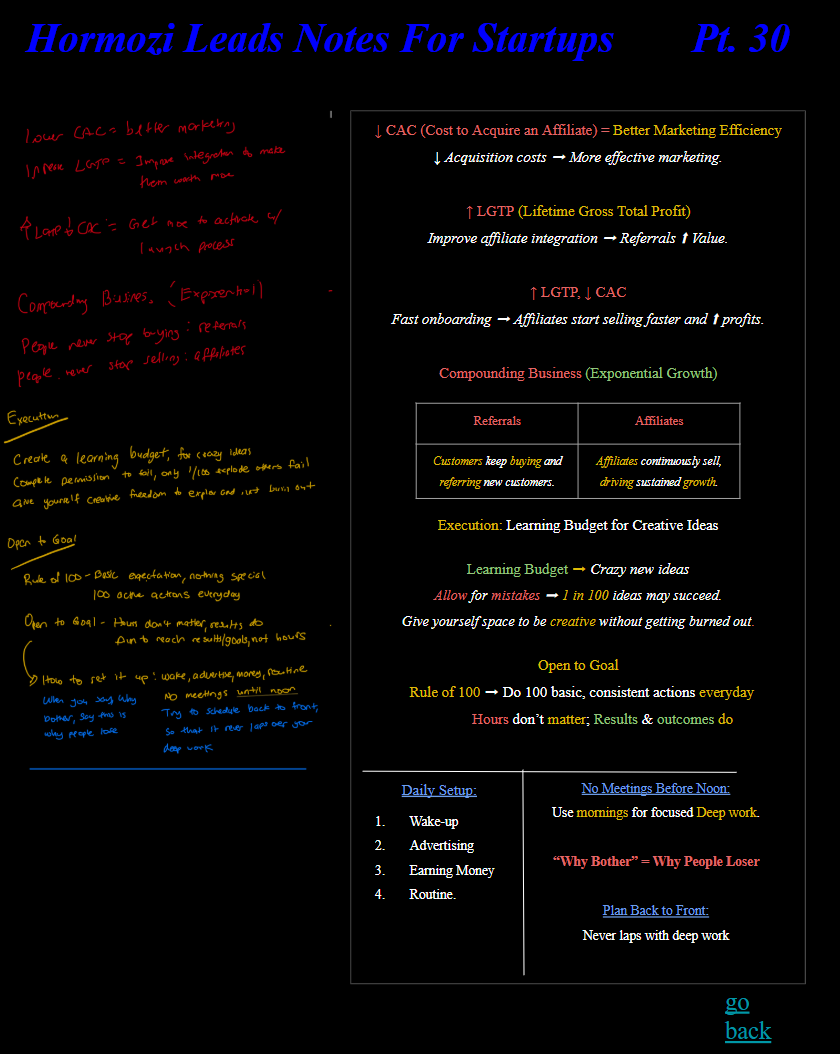 Hormozi Leads Notes For Startups Pt. 30
lower CAC = better marketing
Increase LGTP = Improve integration to make
them worth more
↑LGTP ↓ CAC = Get more to activate w/
launch process
Compounding Business. (Exponential)
People never stop buying : referrals
people never stop selling : affiliates
Execution
Create a learning budget, for crazy ideas
Complete permission to fail, only 1/100 explode others fail
Give yourself creative freedom to explore and not burn out
Open to Goal
Rule of 100 - Basic expectation, nothing special
100 active actions everyday
Open to Goal - Hours don't matter, results do
Aim to reach results/goals, not hours
How to set it up : wake, advertise, money, routine
NO meetings until noon
Try to schedule back to front,
so that it never laps over your
deep work
When you say Why
bother, say this is
why people lose
↓ CAC (Cost to Acquire an Affiliate) = Better Marketing Efficiency
↓ Acquisition costs → More effective marketing.
↑ LGTP (Lifetime Gross Total Profit)
Improve affiliate integration → Referrals ⬆ Value.
↑ LGTP, ↓ CAC
Fast onboarding → Affiliates start selling faster and ⬆ profits.
Compounding Business (Exponential Growth)
Referrals Affiliates
Customers keep buying and Affiliates continuously sell,
referring new customers. driving sustained growth.
Execution: Learning Budget for Creative Ideas
Learning Budget → Crazy new ideas
Allow for mistakes → 1 in 100 ideas may succeed.
Give yourself space to be creative without getting burned out.
Open to Goal
Rule of 100 → Do 100 basic, consistent actions everyday
Hours don't matter; Results & outcomes do
Daily Setup:
1. Wake-up
2. Advertising
3. Earning Money
4. Routine.
No Meetings Before Noon:
Use mornings for focused Deep work.
“Why Bother” = Why People Loser
Plan Back to Front:
Never laps with deep work
go
back